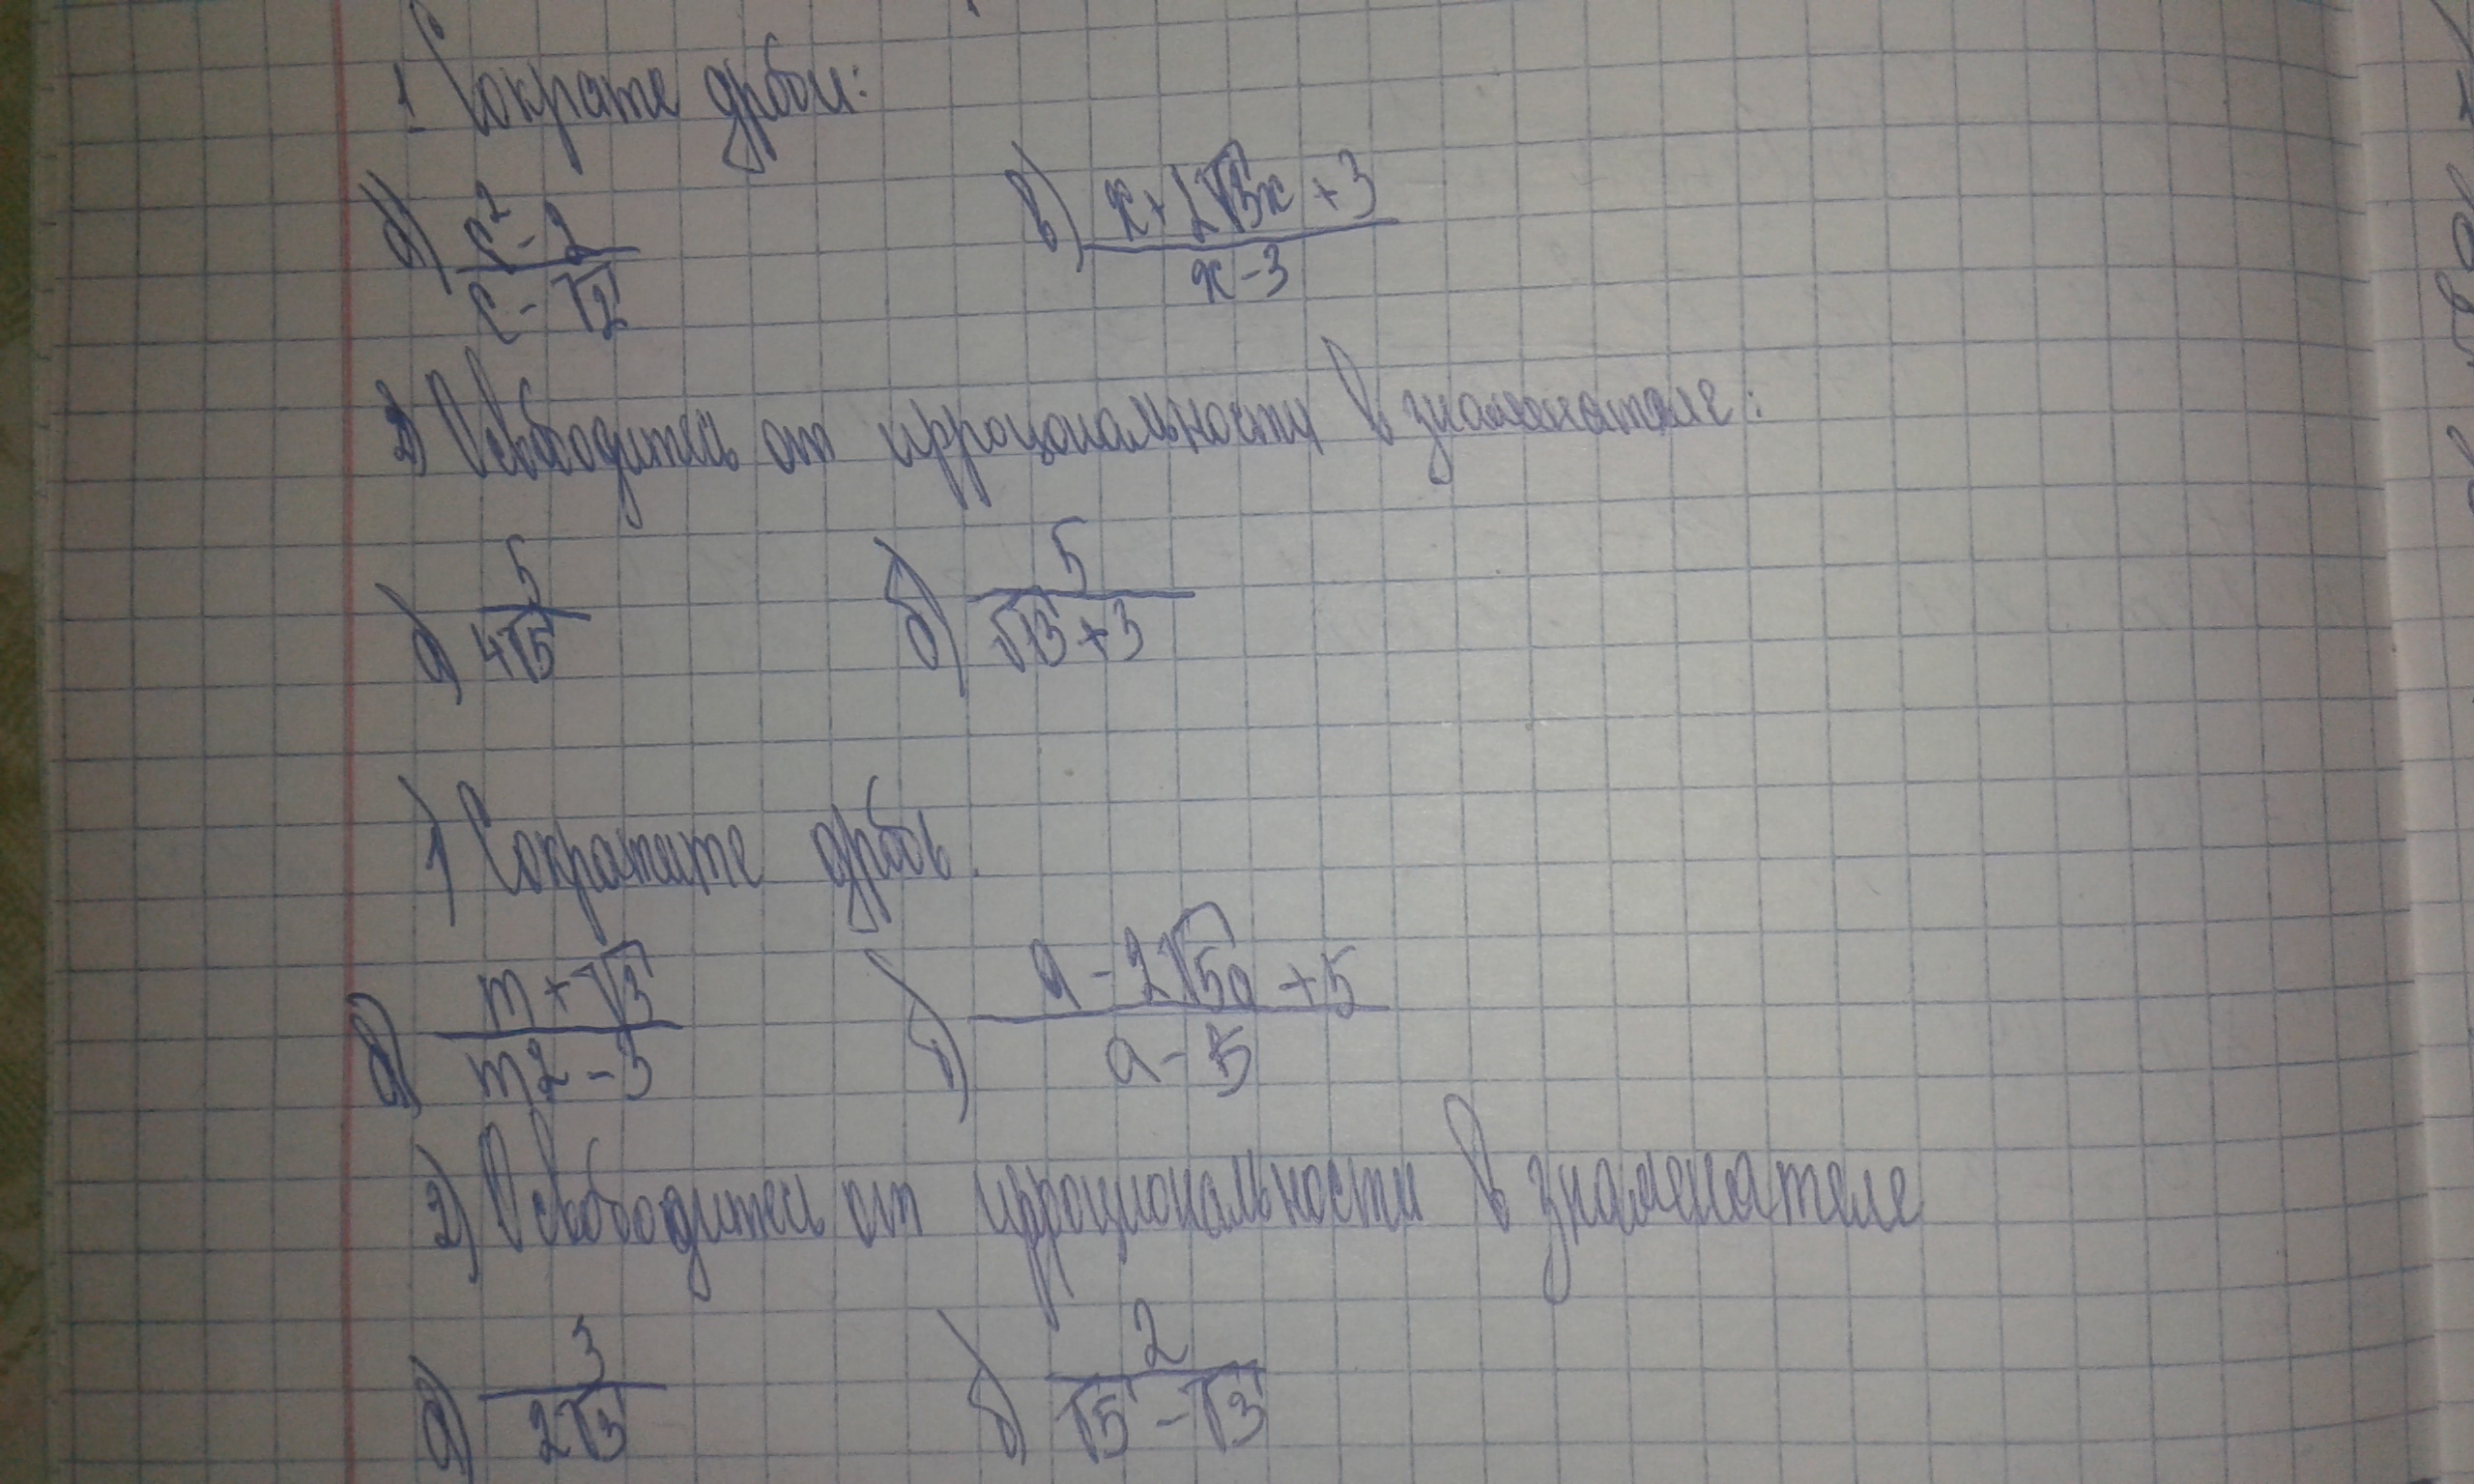 1 Сократе дроби:
а) c²-2 / c-√2   в) x+2√3x+3 / x-3
2) Освободитесь от иррациональности в знаменателе:
а) 5 / 4√5   б) 5 / √13+3
1) Сократите дробь.
а) m+√3 / m2-3   б) a-2√5a+5 / a-5
2) Освободитесь от иррациональности в знаменателе
а) 3 / 2√3   б) 2 / √5-√3